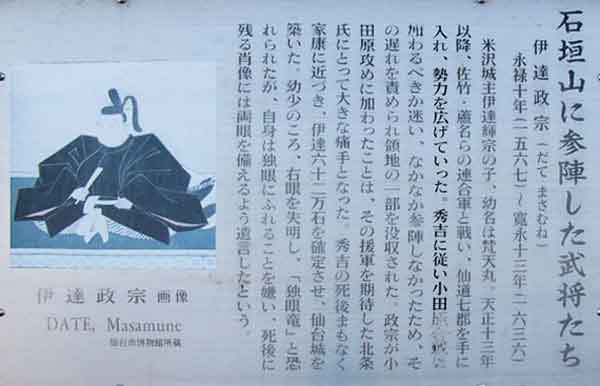 石垣山に参陣した武将たち
伊達政宗（だて まさむね）
永禄十年（一五六七）～寛永十三年（一六三六）
米沢城主伊達輝宗の子、幼名は梵天丸。天正十三年
以降、佐竹・蘆名らの連合軍と戦い、仙道七郡を手に
入れ、勢力を広げていった。秀吉に従い小田原
加わるべきか迷い、なかなか参陣しなかったため、そ
の遅れを責められ領地の一部を没収された。政宗が小
田原攻めに加わったことは、その援軍を期待した北条
氏にとって大きな痛手となった。秀吉の死後まもなく
家康に近づき、伊達六十二万石を確定させ、仙台城を
築いた。幼少のころ、右眼を失明し、「独眼竜」と恐
れられたが、自身は独眼にふれることを嫌い、死後に
残る肖像には両眼を備えるよう遺言したという。
伊達政宗 画像
DATE, Masamune
仙台市博物館所蔵